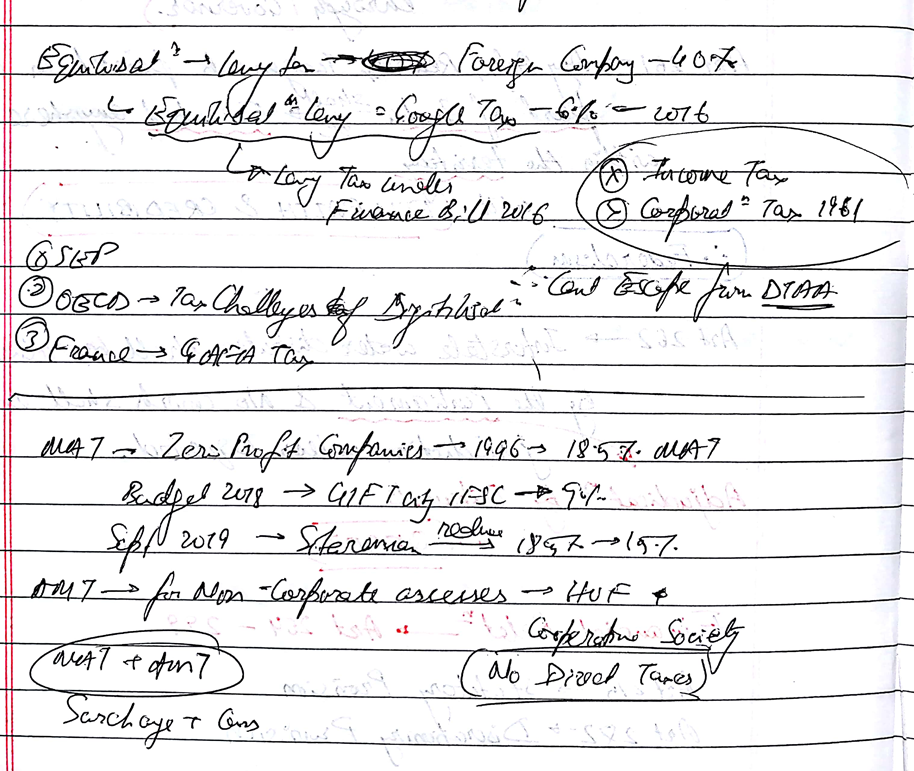 Equilisatⁿ → Levy for → Foreign Company - 40%
↳ Equilisatⁿ Levy = Google Tax - 6% - 2016
↳ Levy Tax under
Finance Bill 2016
ⓧ Income Tax
ⓧ Corporatⁿ Tax 1961
① SEP
∴ Cant Escape from DTAA
② OECD → Tax Challeges of Digitilisatⁿ
③ France → GAFA Tax
MAT → Zero Profit Companies → 1996 → 18.5% MAT
Budget 2018 → GIFT City IFSC → 9%
Sept 2019 → Sitaraman reduce → 18.5% → 15%
AMT → for Non-Corporate assesses → HUF
Cooperative Society
MAT + AMT
(No Direct Taxes)
Surchage + Cess